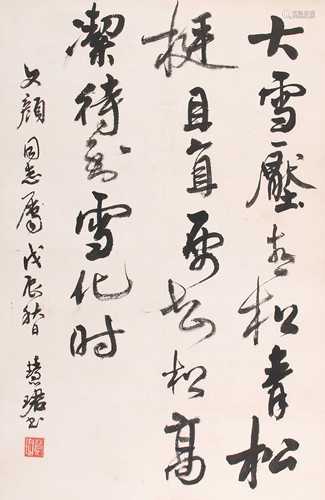 大雪壓青松青松
挺且直要知松高
潔待到雪化时
文顔同志属戊辰慧珺书